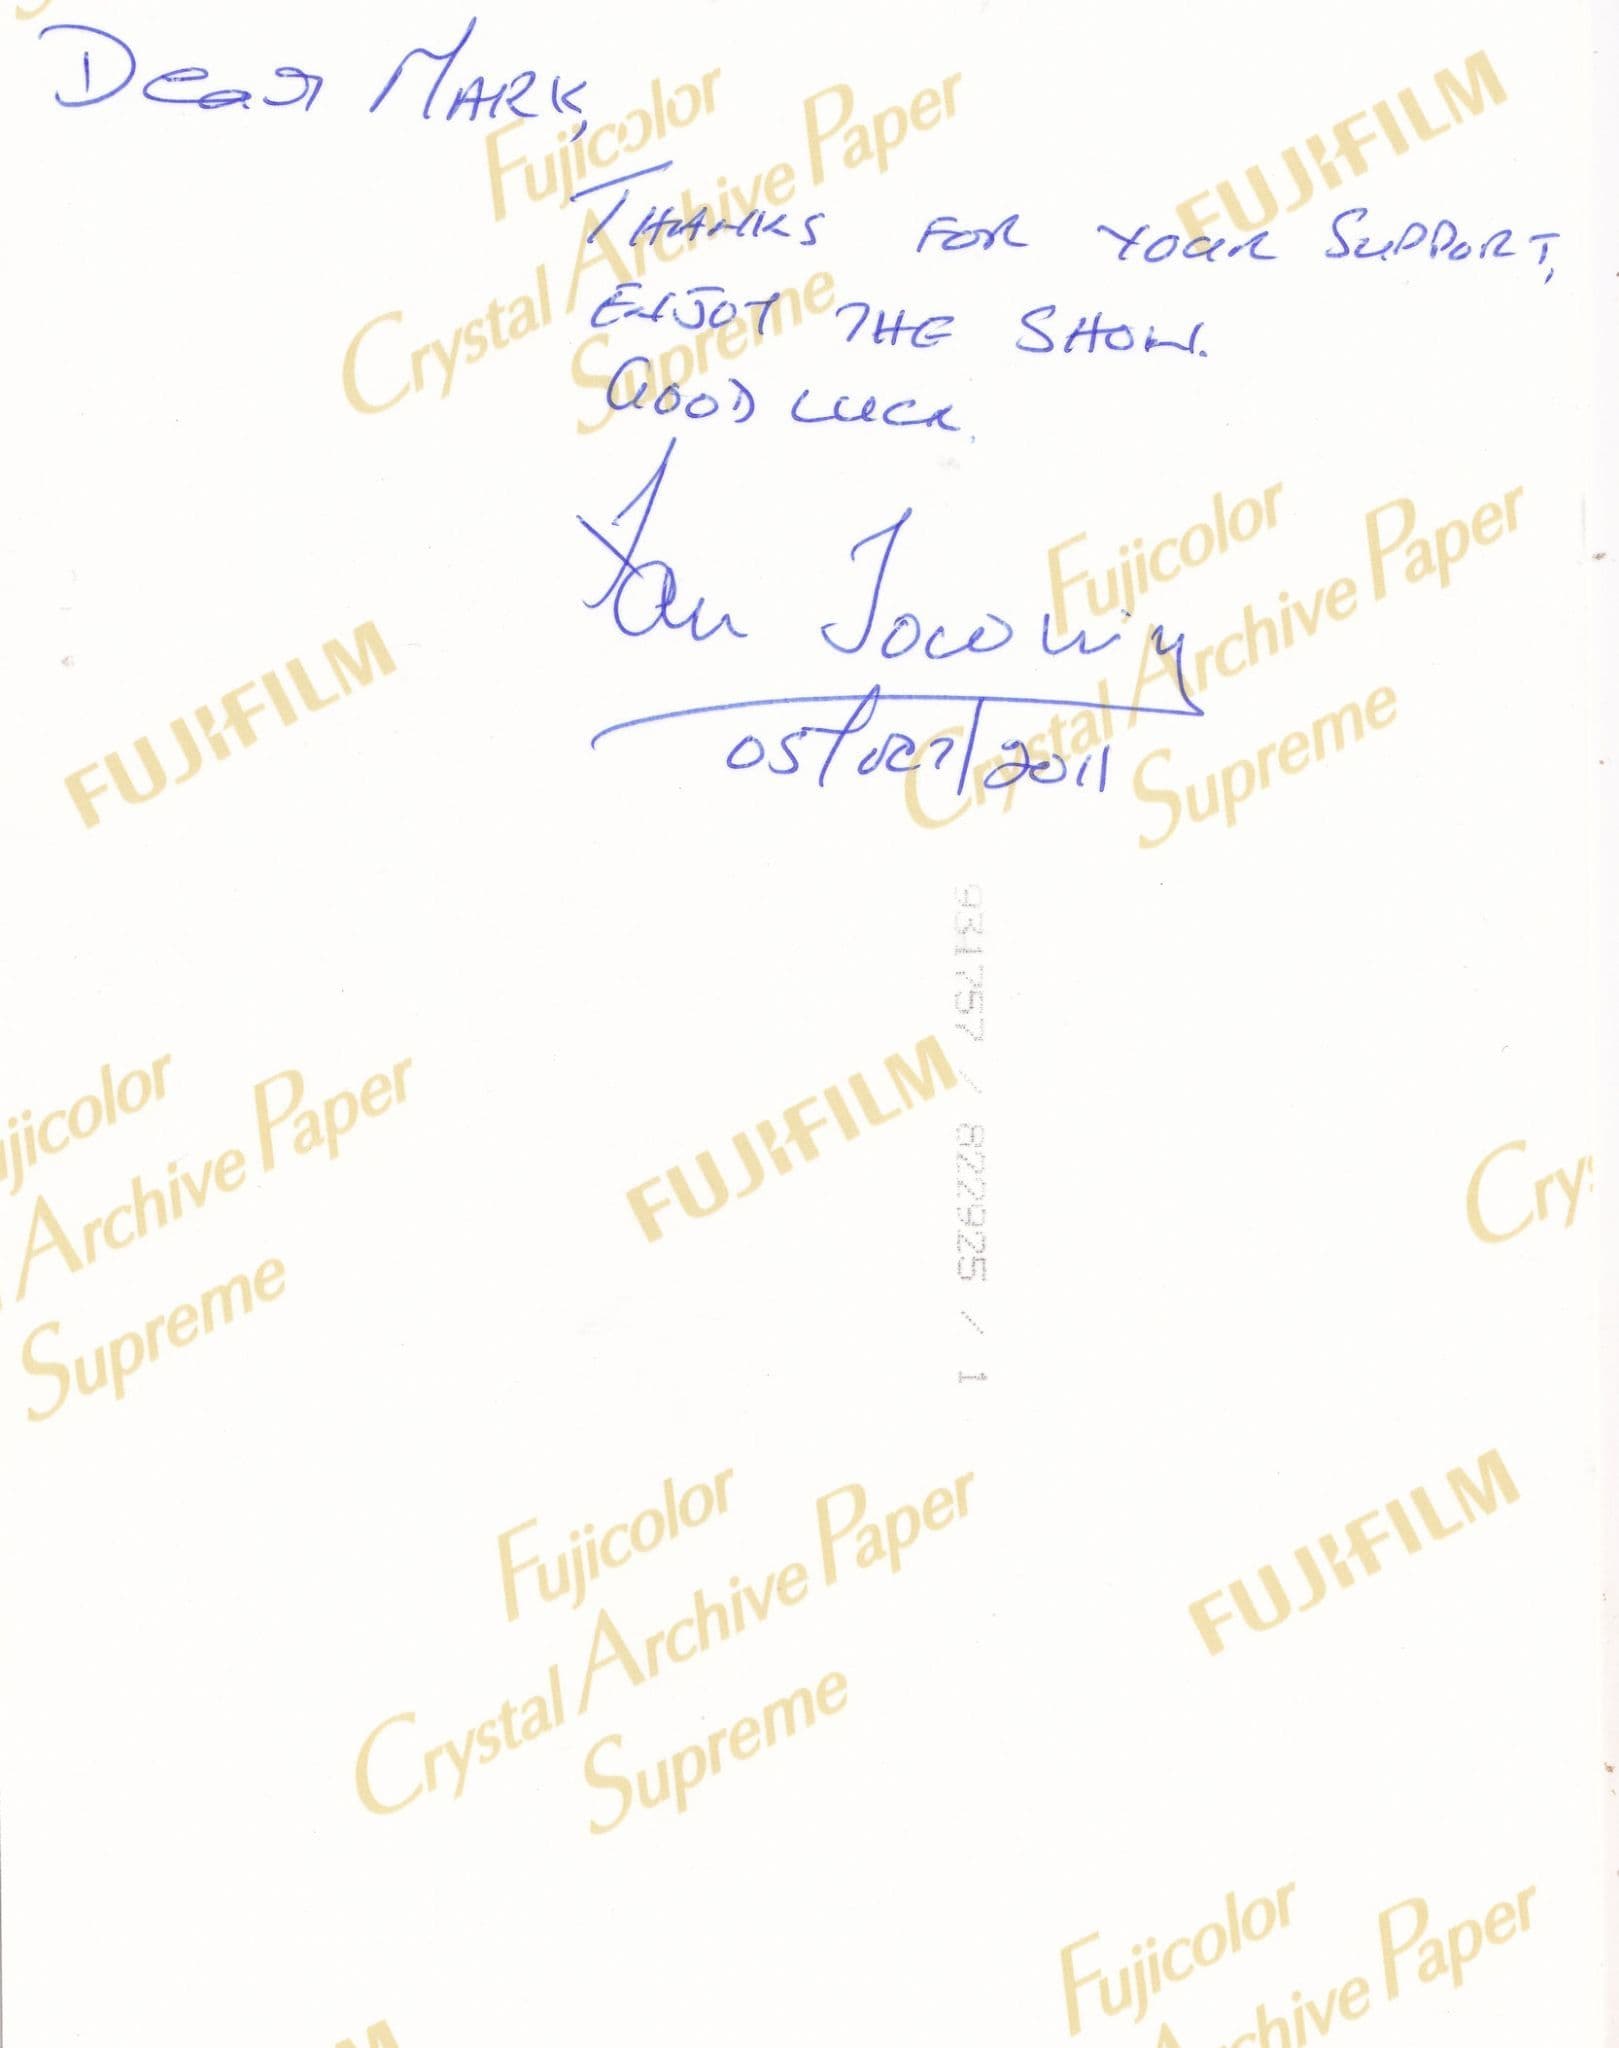 Dear MARK,
THANKS FOR YOUR SUPPORT,
ENJOY THE SHOW.
GOOD LUCK.
Ian
05/OCT/2011
Fujicolor
Crystal Archive Paper
Supreme
FUJIFILM
Fujicolor
Crystal Archive Paper
Supreme
FUJIFILM
931757 / 822925 / 1
jicolor
Archive Paper
Supreme
FUJIFILM
Crys
Fujicolor
Crystal Archive Paper
Supreme
FUJIFILM
Fujicolor
Archive Paper
M